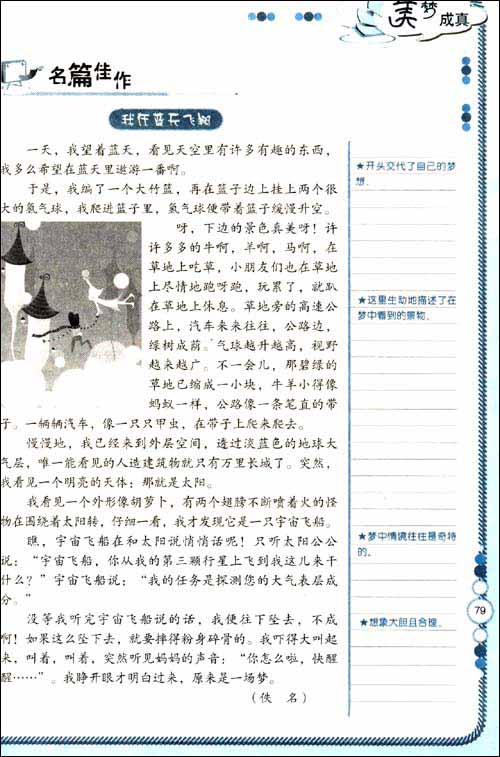 美梦
成真
名篇佳作
我在蓝天飞翔
一天，我望着蓝天，看见天空里有许多有趣的东西，
我多么希望在蓝天里遨游一番啊。
于是，我编了一个大竹篮，再在篮子边上挂上两个很
大的氢气球，我爬进篮子里，氢气球便带着篮子缓慢升空。
呀，下边的景色真美呀！许
许多多的牛啊，羊啊，马啊，在
草地上吃草，小朋友们也在草地
上尽情地跑呀跑，玩累了，就趴
在草地上休息。草地旁的高速公
路上，汽车来来往往，公路边，
绿树成荫。气球越升越高，视野
越来越广。不一会儿，那碧绿的
草地已缩成一小块，牛羊小得像
蚂蚁一样，公路像一条笔直的带
子。一辆辆汽车，像一只只甲虫，在带子上爬来爬去。
慢慢地，我已经来到外层空间，透过淡蓝色的地球大
气层，唯一能看见的人造建筑物就只有万里长城了。突然，
我看见一个明亮的天体：那就是太阳。
我看见一个外形像胡萝卜，有两个翅膀不断喷着火的怪
物在围绕着太阳转，仔细一看，我才发现它是一只宇宙飞船。
瞧，宇宙飞船在和太阳说悄悄话呢！只听太阳公公
说：“宇宙飞船，你从我的第三颗行星上飞到我这儿来干
什么？”宇宙飞船说：“我的任务是探测您的大气表层成
分。”
没等我听完宇宙飞船说的话，我便往下坠去，不成
啊！如果这么坠下去，就要摔得粉身碎骨的。我吓得大叫起
来，叫着，叫着，突然听见妈妈的声音：“你怎么啦，快醒
醒……”。我睁开眼才明白过来，原来是一场梦。
（佚 名）
★开头交代了自己的梦
想。
★这里生动地描述了在
梦中看到的景物。
★梦中情境往往是奇特
的。
★想象大胆且合理。
79